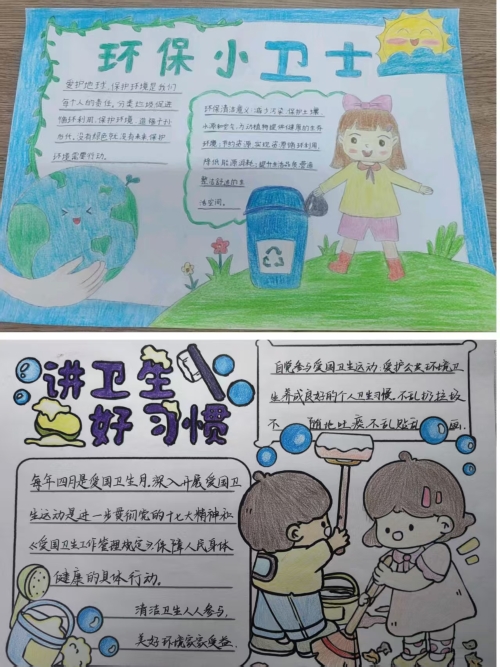 环保小卫士
爱护地球,保护环境是我们
每个人的责任,分类垃圾促进
循环利用,保护环境
为什,没有绿色就没有未来保护
环境需要行动。
环保清洁意义:减于污染,保护土壤
水源和空气,为动植物提神健康的生存
环境;节约资源,实现资源循环利用,
降低能源消耗;提升生活品质营造
整洁舒适的生
活空间。
讲卫生
好习惯
自觉参与爱国卫生运动,爱护公共环境卫
生养成良好的个人卫生习惯,不乱扔垃圾
不 随地吐痰,不乱 画。
每年四月是爱国卫生月,深入开展爱国卫
生运动是进一步贯彻党的十七大精神和
《爱国卫生工作管理规定》,保障人民身体
健康的具体行动。
清洁卫生人人参与,
美好环境家家受益.